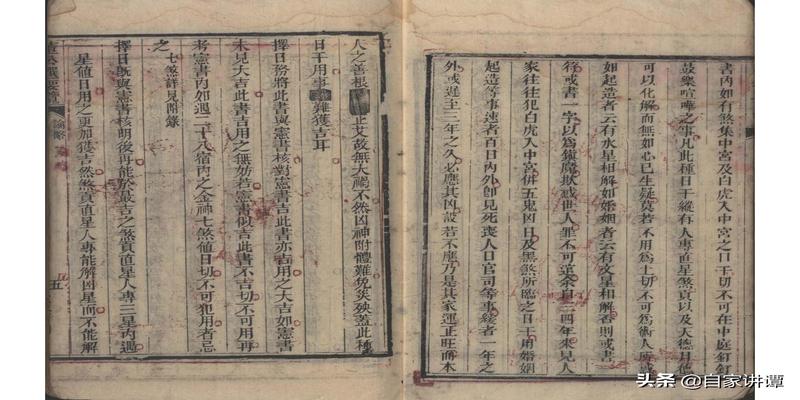 書內如有煞集中宮及白虎入中宮之日干切不可在中庭釘釘
鼓樂喧嘩之事凡此種日干縱有人專直星煞貢以及天德月德
可以化解而無如心已生疑莫若不用為上切不可為術人
如起造者云有水星相解如婚姻者云有文星相解香則或書
符或書一字以為鎮魔欺惑世人罪不可逭余自三四年來見人
家往往犯白虎入中宮併五鬼凶日及黑煞所臨之日干用婚姻
起造等事速者百日內外卽見死喪人口官司等事緩者一年之
外或遲至三年之久必應其凶設若不應乃是其家運正旺而本
人之善根 正艾故無大禍不然凶神附體難免災殃蓋此種
日干用事 難獲吉耳
擇日務將此書與憲書核對憲書吉此書亦吉用之大吉如憲書
未見大吉此書吉用之無妨若憲書似吉此書不吉切不可用再
考憲書內如遇二十八宿內之金神七煞值日切不可犯用者忌
之 七煞詳見附錄
擇日旣與憲書核明後再能於最吉之煞貢直星人專三星內遇
星值日用之更加獲吉然煞貢直星人專能解凶星而不能解
五
头条 @自家讲谭